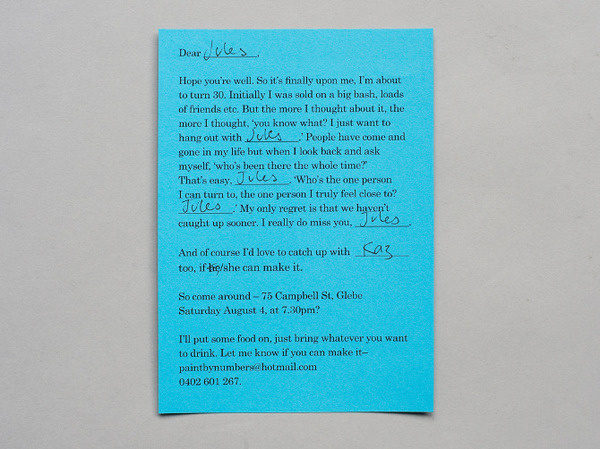 Dear Jules,
Hope you're well. So it's finally upon me, I'm about
to turn 30. Initially I was sold on a big bash, loads
of friends etc. But the more I thought about it, the
more I thought, 'you know what? I just want to
hang out with Jules.' People have come and
gone in my life but when I look back and ask
myself, 'who's been there the whole time?'
That's easy, Jules. 'Who's the one person
I can turn to, the one person I truly feel close to?
Jules.' My only regret is that we haven't
caught up sooner. I really do miss you, Jules.
And of course I'd love to catch up with Kaz
too, if he/she can make it.
So come around – 75 Campbell St, Glebe
Saturday August 4, at 7.30pm?
I'll put some food on, just bring whatever you want
to drink. Let me know if you can make it–
paintbynumbers@hotmail.com
0402 601 267.